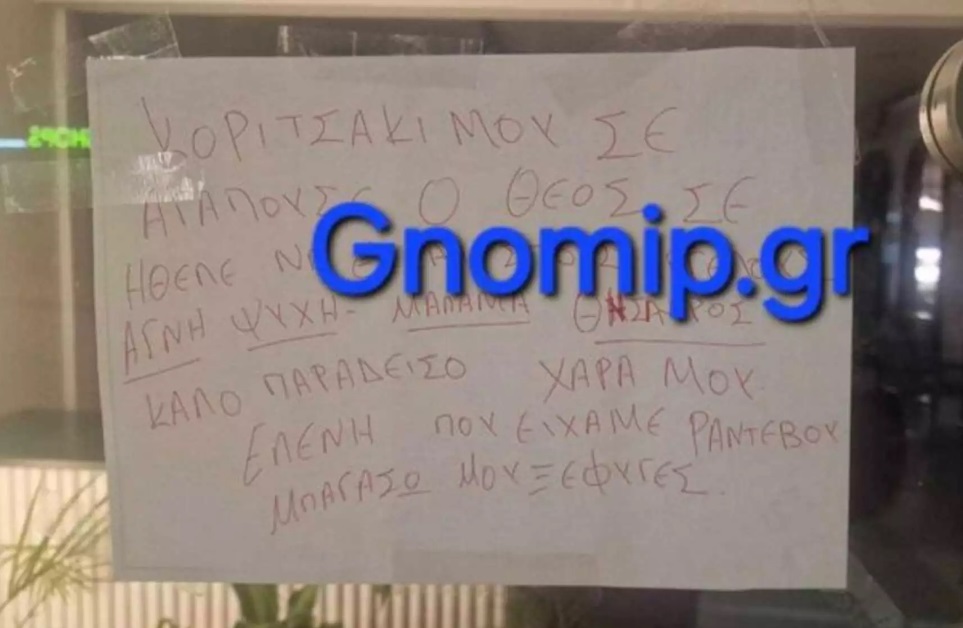 ΚΟΡΙΤΣΑΚΙ ΜΟΥ ΣΕ
ΑΓΑΠΟΥΣΕ Ο ΘΕΟΣ ΣΕ
ΗΘΕΛΕ
ΑΓΝΗ ΨΥΧΗ- ΜΑΛΑΜΑ ΘΗΣΑΥΡΟΣ
ΚΑΛΟ ΠΑΡΑΔΕΙΣΟ ΧΑΡΑ ΜΟΥ.
ΕΛΕΝΗ ΠΟΥ ΕΙΧΑΜΕ ΡΑΝΤΕΒΟΥ
ΜΠΑΓΑΣΩ ΜΟΥ ΞΕΦΥΓΕΣ.
Gnomip.gr